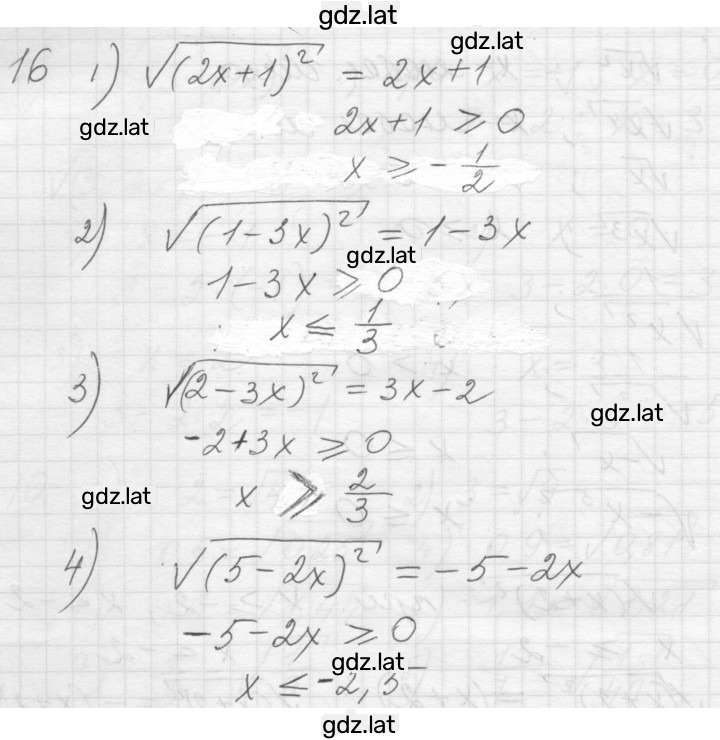 gdz.lat
gdz.lat
16 1) √(2x+1)² = 2x+1
gdz.lat
2x+1 ⩾ 0
x ⩾ - 1/2
2) √(1-3x)² = 1-3x
gdz.lat
1-3x ⩾ 0
x ≤ 1/3
3) √(2-3x)² = 3x-2
gdz.lat
-2+3x ⩾ 0
gdz.lat
x ⩾ 2/3
4) √(5-2x)² = -5-2x
-5-2x ⩾ 0
gdz.lat
x ≤ -2,5
gdz.lat